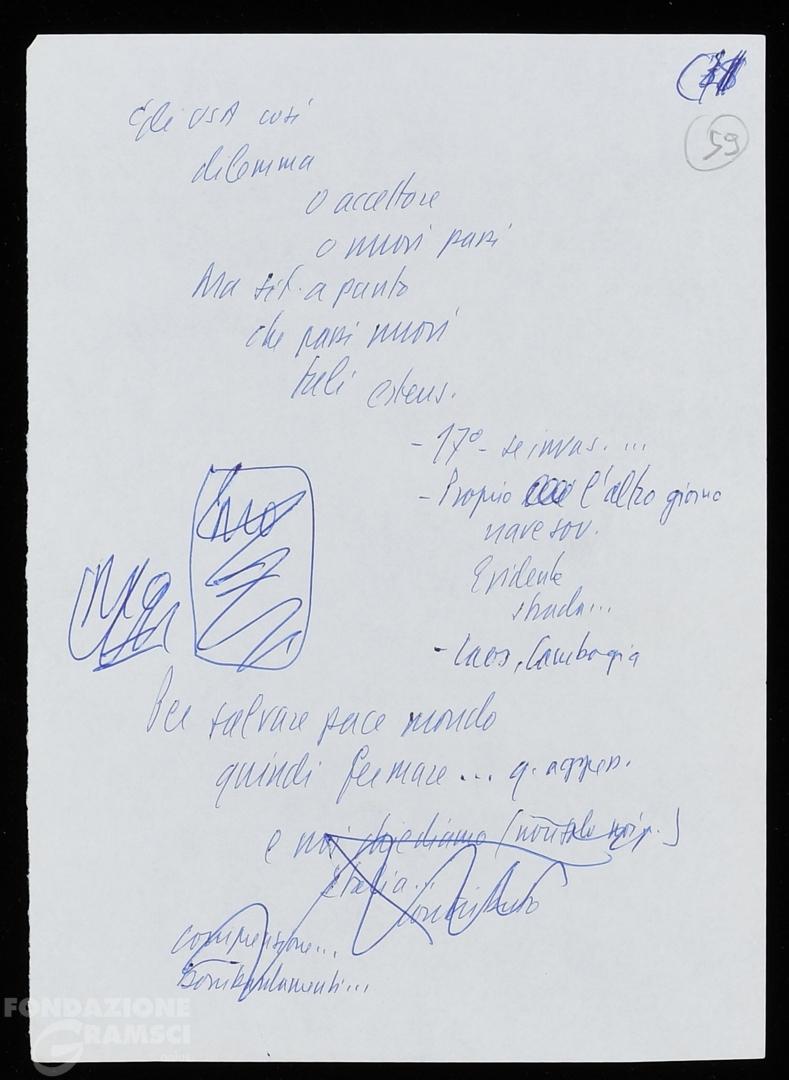 59
E gli USA così
dilemma
o accettare
o nuovi passi
Ma sit. a punto
che passi nuovi
tali estens.
- 17° - se invas. ...
- Proprio l'altro giorno
nave sov.
Evidente
strada...
- Laos, Cambogia
Per salvare pace mondo
quindi fermare... q. aggress.
e noi chiediamo (non solo noi p.)
Italia...
contributo
comprensione...
bombardamenti...
FONDAZIONE
GRAMSCI
onlus